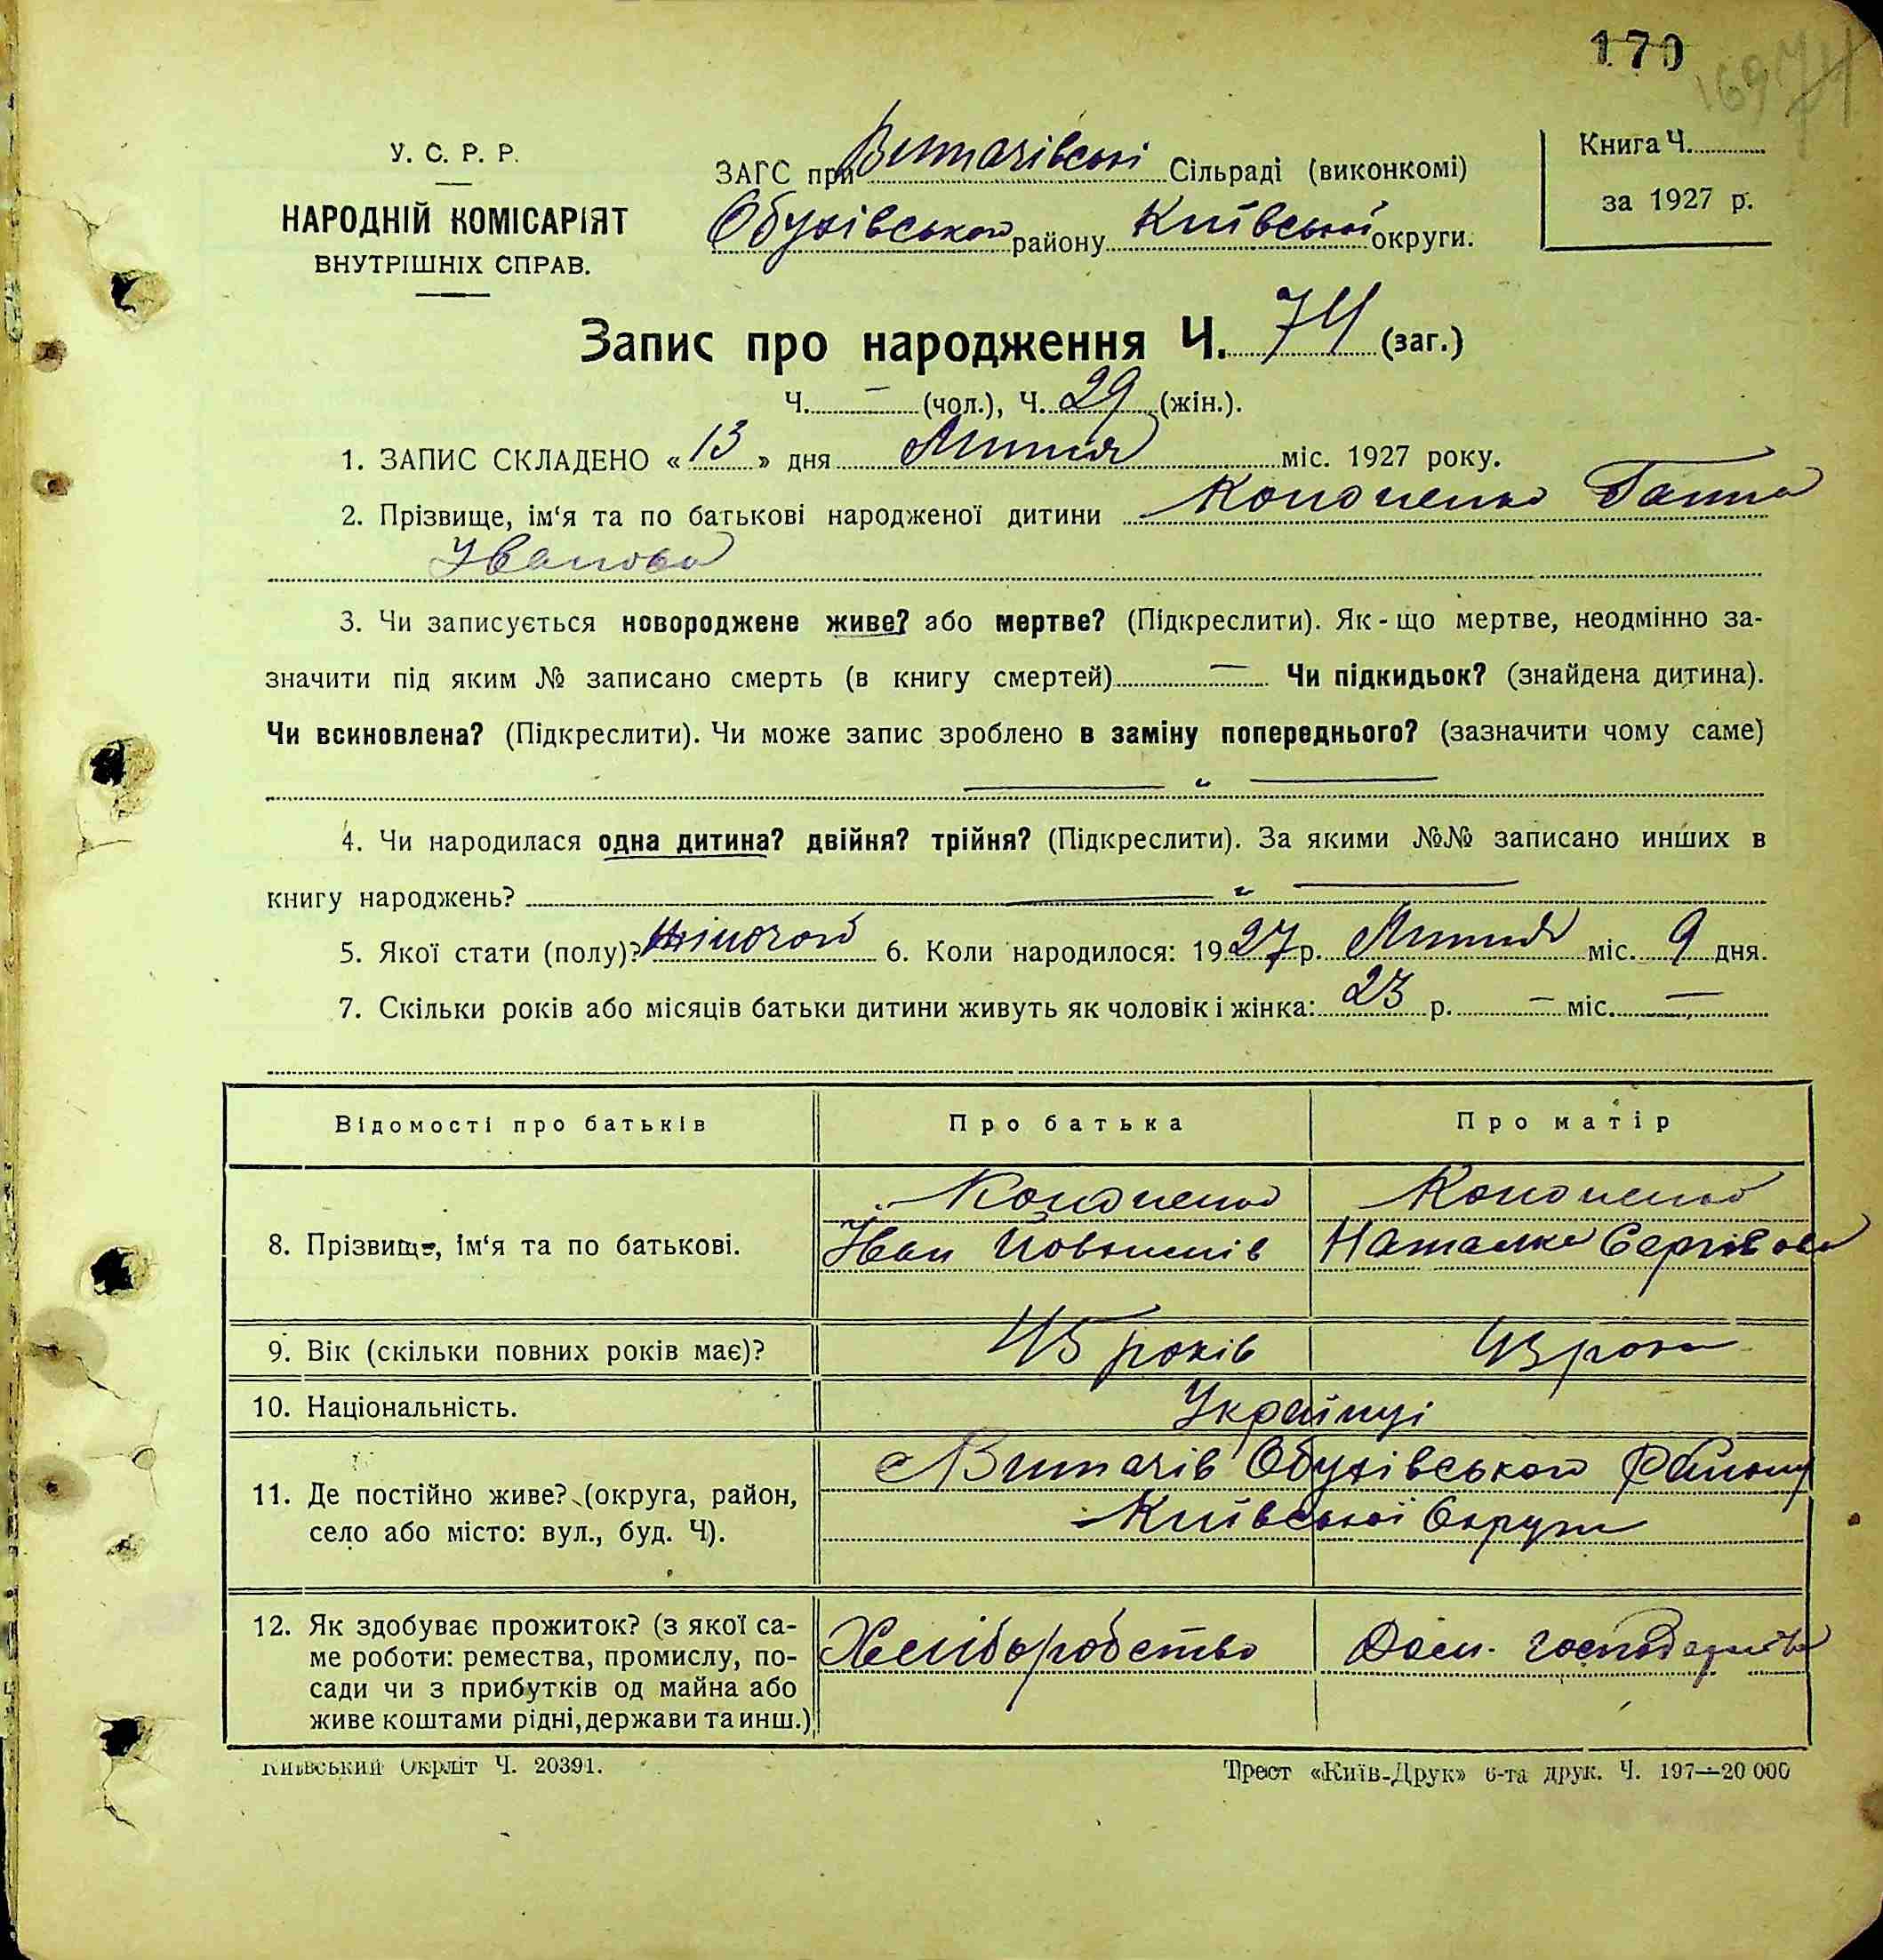 170
169 74
У. С. Р. Р.
НАРОДНІЙ КОМІСАРІЯТ
ВНУТРІШНІХ СПРАВ.
ЗАГС при Витачівські Сільраді (виконкомі)
Обухівського району Київської округи.
Книга Ч.
за 1927 р.
Запис про народження Ч. 74 (заг.)
Ч. — (чол.), Ч. 29 (жін.).
1. ЗАПИС СКЛАДЕНО «13» дня Липня міс. 1927 року.
2. Прізвище, ім‘я та по батькові народженої дитини Кононенко Ганна
Іванова
3. Чи записується новороджене живе? або мертве? (Підкреслити). Як-що мертве, неодмінно за-
значити під яким № записано смерть (в книгу смертей) — Чи підкидьок? (знайдена дитина).
Чи всиновлена? (Підкреслити). Чи може запис зроблено в заміну попереднього? (зазначити чому саме)
— „ —
4. Чи народилася одна дитина? двійня? трійня? (Підкреслити). За якими №№ записано инших в
книгу народжень? — „ —
5. Якої стати (полу)? жіночої 6. Коли народилося: 1927 р. Липня міс. 9 дня.
7. Скільки років або місяців батьки дитини живуть як чоловік і жінка: 23 р. — міс. —
Відомості про батьків Про батька Про матір
8. Прізвище, ім‘я та по батькові. Кононенко Кононенко
Іван Наталка Сергієва
9. Вік (скільки повних років має)? 45 років 43 роки
10. Національність. Українці
11. Де постійно живе? (округа, район, с Витачів Обухівського Району
село або місто: вул., буд. Ч). Київської Округи
12. Як здобуває прожиток? (з якої са- Хліборобство Дом. господарство
ме роботи: ремества, промислу, по-
сади чи з прибутків од майна або
живе коштами рідні, держави та инш.)
Київський Окрліт Ч. 20391. Трест «Київ-Друк» 6-та друк. Ч. 197—20 000